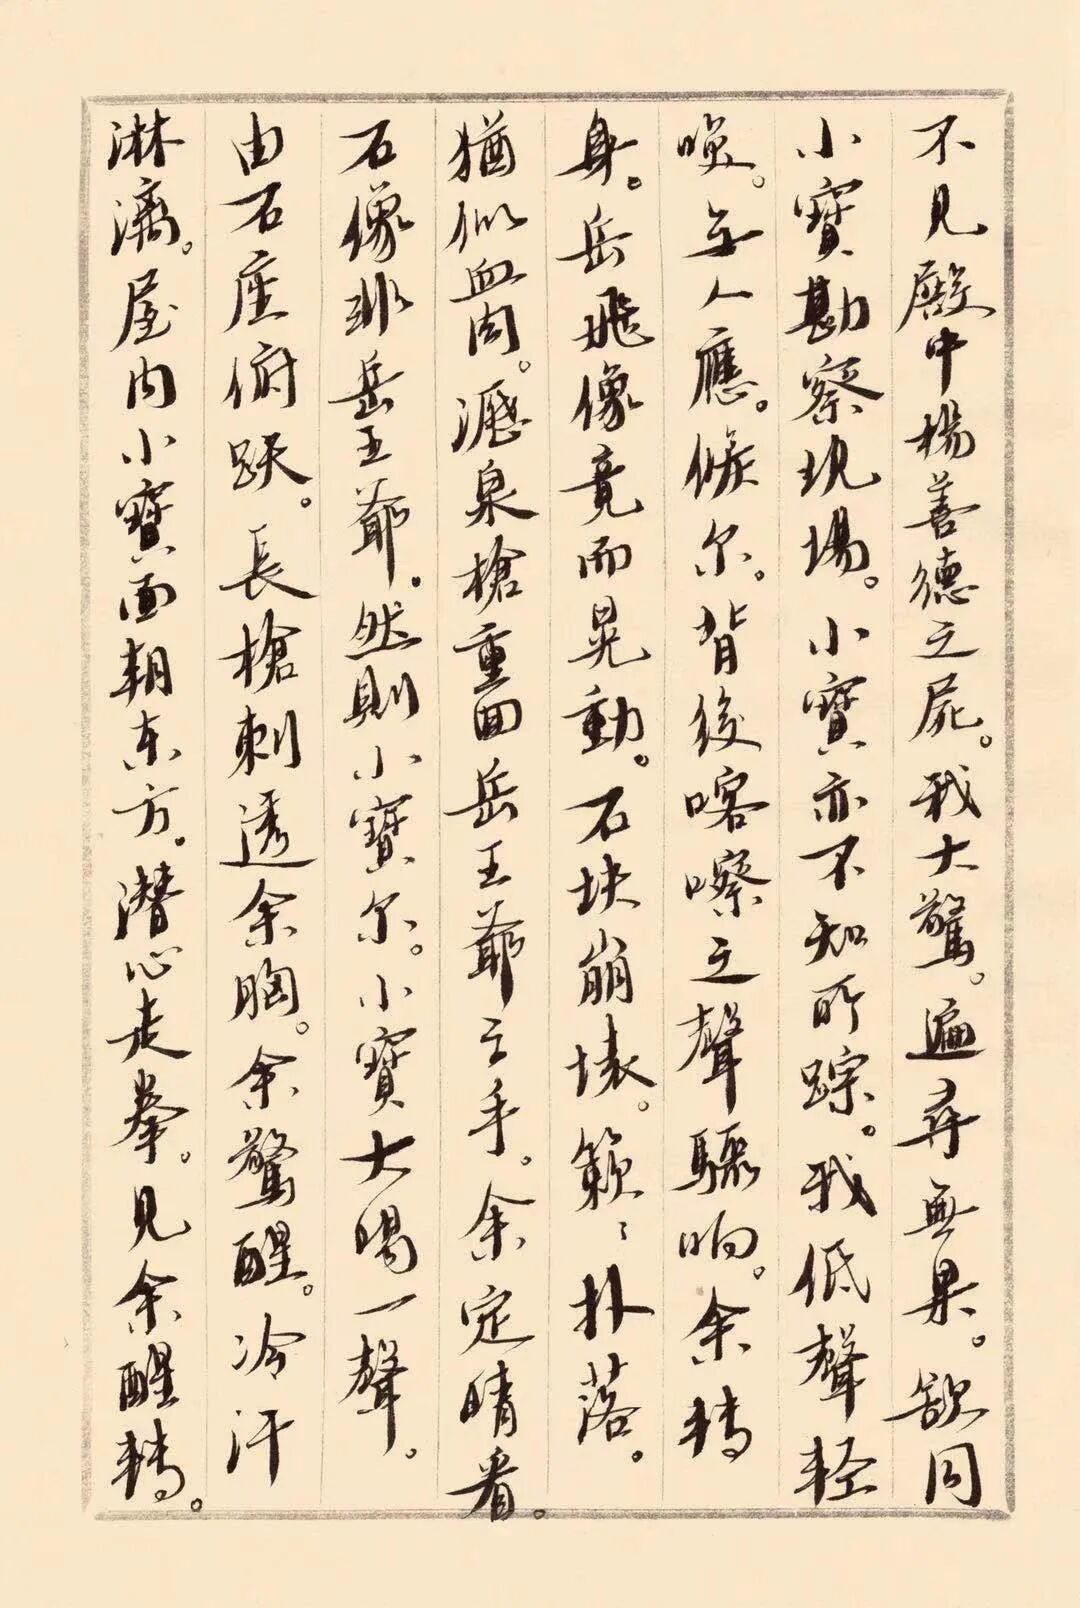 不見殿中楊善德之屍。我大驚。遍尋無果。欲同
小寶勘察現場。小寶亦不知所踪。我低聲轻
唤。无人應。候尔。背後喀嚓之聲驟响。余转
身。岳飛像竟而晃動。石块崩壊。簌〻扑落。
猶似血肉。瀝泉槍重回岳王爺之手。余定晴看。
石像非岳王爺。然則小寶尔。小寶大喝一聲。
由石座俯跃。長槍刺透余胸。余驚醒。冷汗
淋漓。屋内小寶面朝东方。潜心走拳。見余醒转。